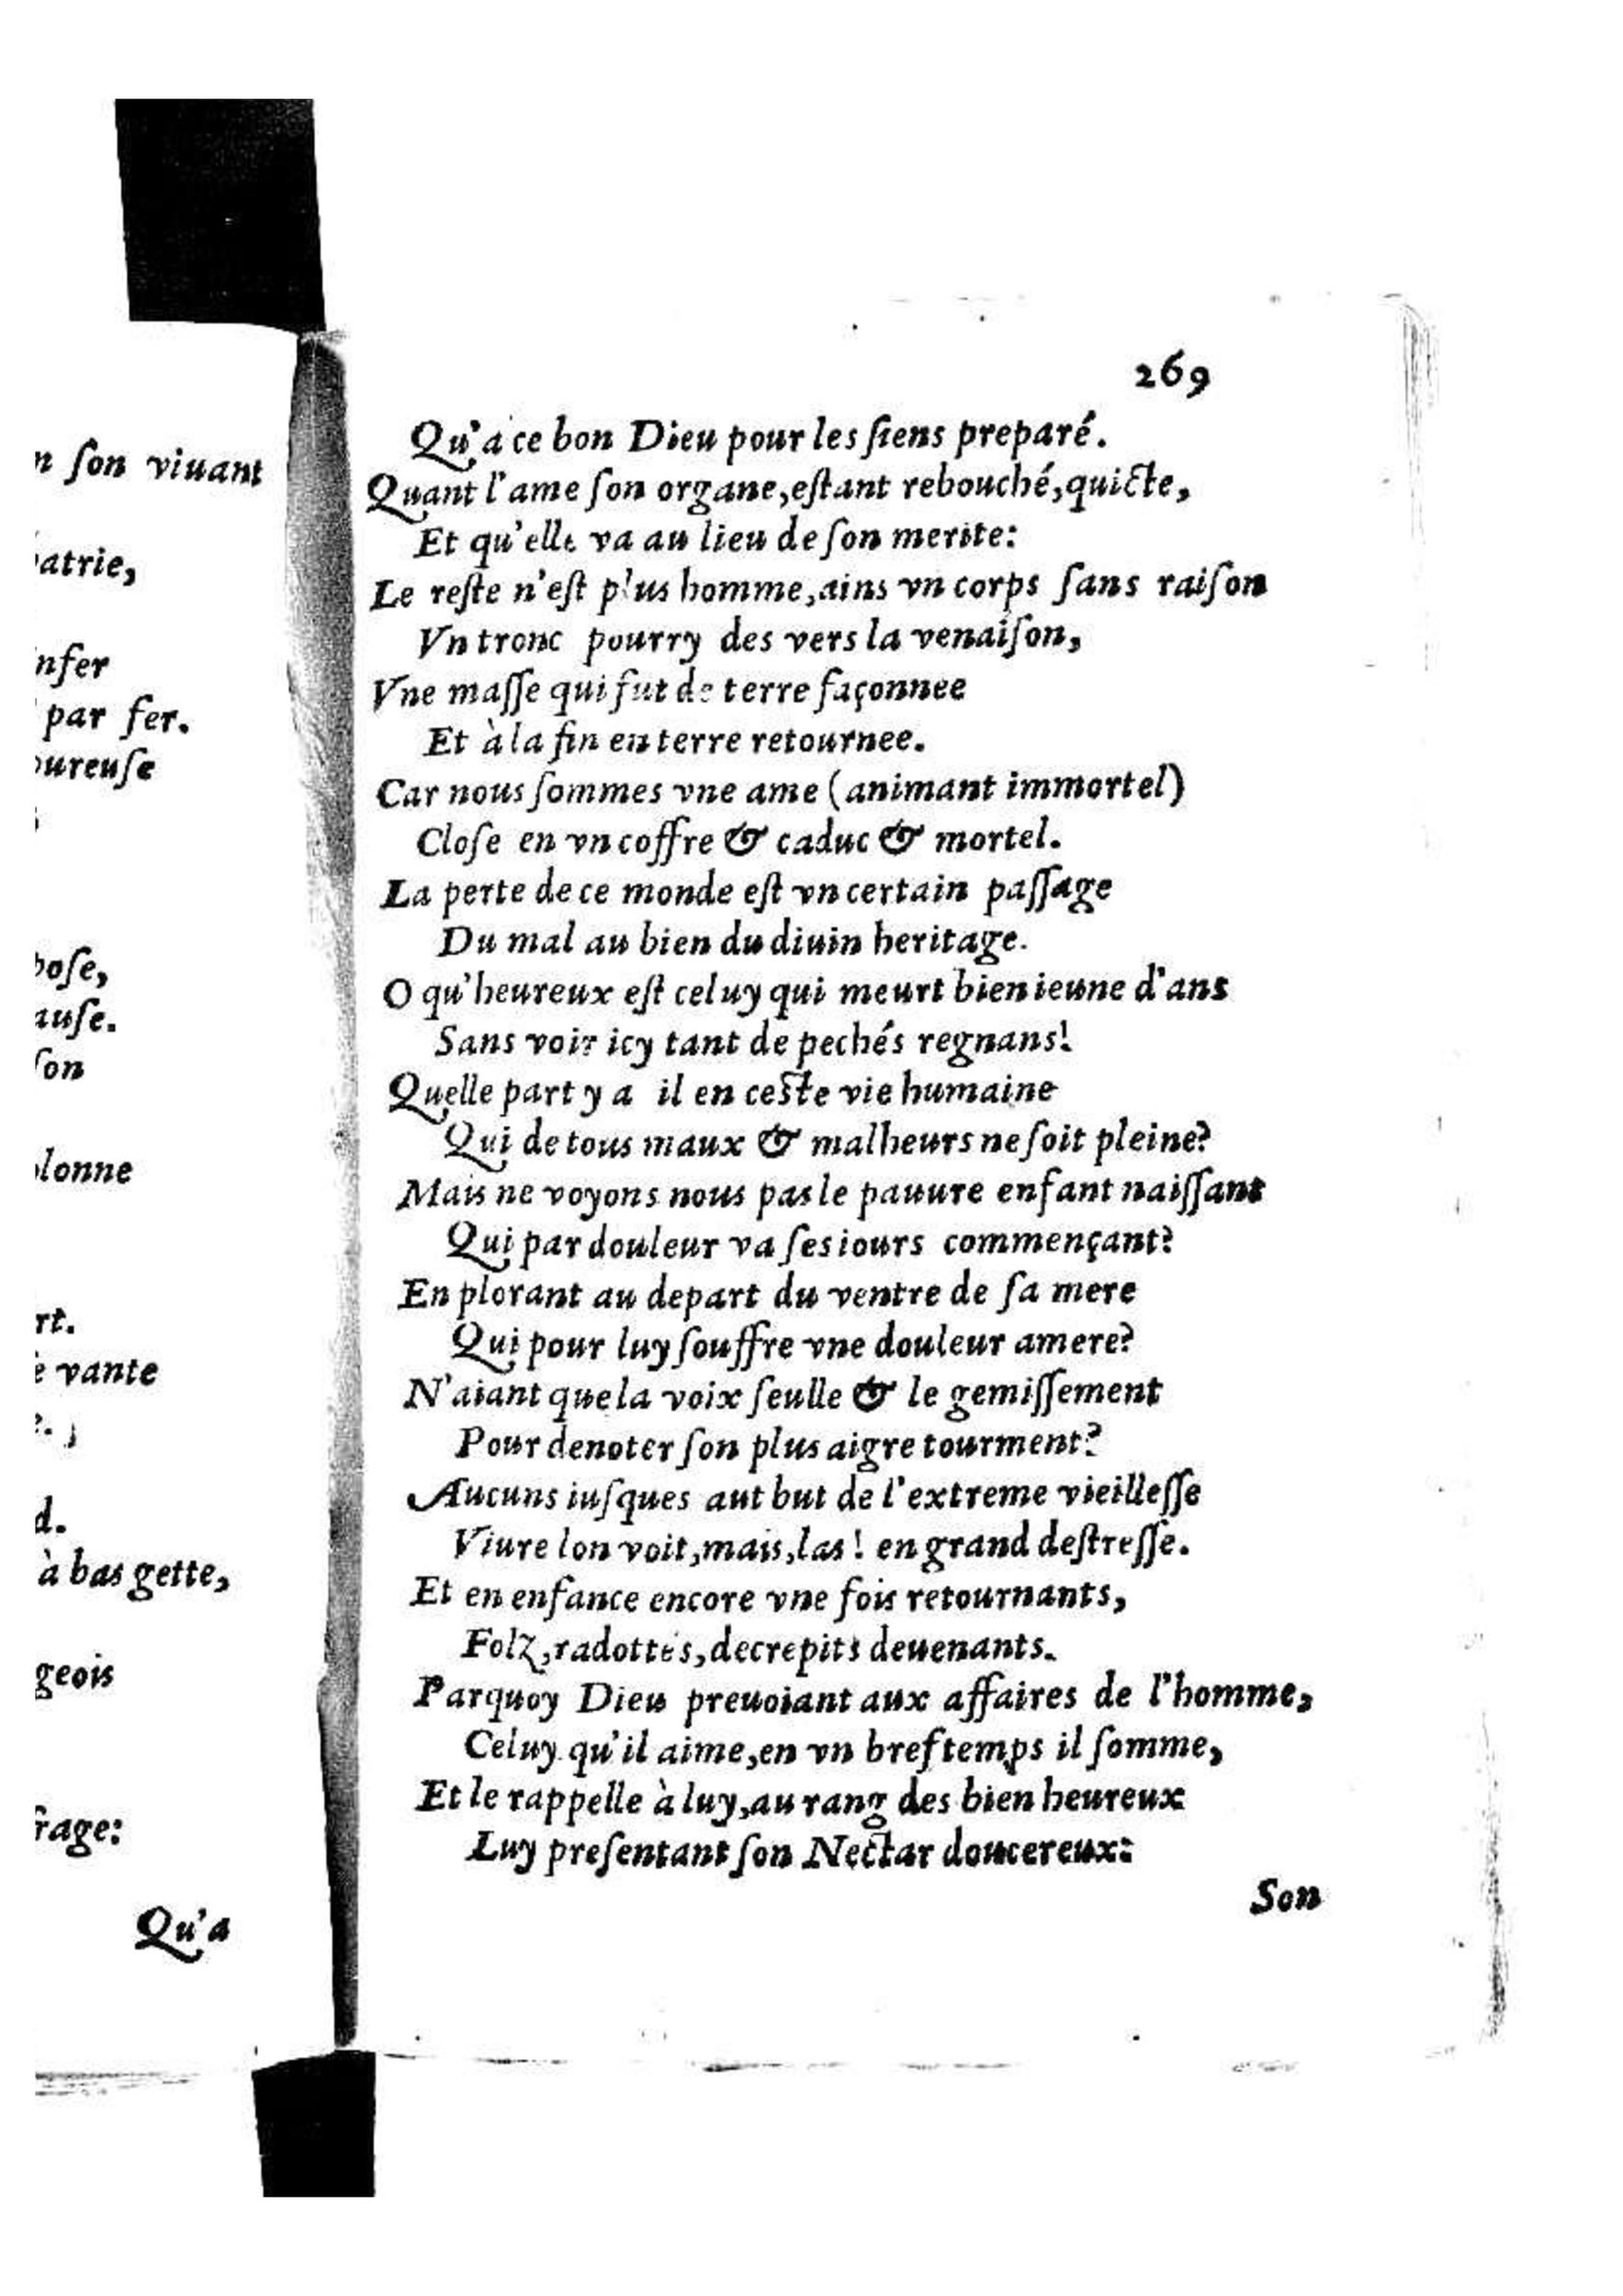 n ſon viuant
atrie,
nfer
par fer.
ureuſe
poſe,
auſe.
ſon
lonne
rt.
vante
d.
à bas gette,
geois
rage:
Qu'a
269
Qu'a ce bon Dieu pour les ſiens preparé.
Quant l'ame ſon organe, eſtant rebouché, quicte,
Et qu'elle va au lieu de ſon merite:
Le reſte n'eſt plus homme, ains vn corps ſans raiſon
Vn tronc pourry des vers la venaiſon,
Vne maſſe qui fut de terre façonnee
Et à la fin en terre retournee.
Car nous ſommes vne ame (animant immortel)
Cloſe en vn coffre & caduc & mortel.
La perte de ce monde eſt vn certain paſſage
Du mal au bien du diuin heritage.
O qu'heureux eſt celuy qui meurt bien ieune d'ans
Sans voir icy tant de pechés regnans!
Quelle part y a il en ceſte vie humaine
Qui de tous maux & malheurs ne ſoit pleine?
Mais ne voyons nous pas le pauure enfant naiſſant
Qui par douleur va ſes iours commençant?
En plorant au depart du ventre de ſa mere
Qui pour luy ſouffre vne douleur amere?
N'aiant que la voix ſeulle & le gemiſſement
Pour denoter ſon plus aigre tourment?
Aucuns iuſques aut but de l'extreme vieilleſſe
Viure lon voit, mais, las! en grand deſtreſſe.
Et en enfance encore vne fois retournants,
Folz, radottés, decrepits deuenants.
Parquoy Dieu preuoiant aux affaires de l'homme,
Celuy qu'il aime, en vn bref temps il ſomme,
Et le rappelle à luy, au rang des bien heureux
Luy preſentant ſon Nectar doucereux:
Son